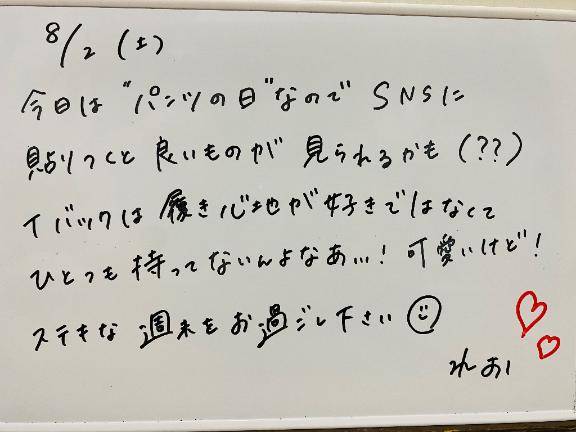 8/2 (土)
今日は"パンツの日"なので SNSに
貼りつくと 良いものが 見られるかも (??)
Tバックは 履き心地が好きではなくて
ひとつも 持ってないんよなあ...! 可愛いけど!
ステキな 週末を お過ごし下さい
れおい